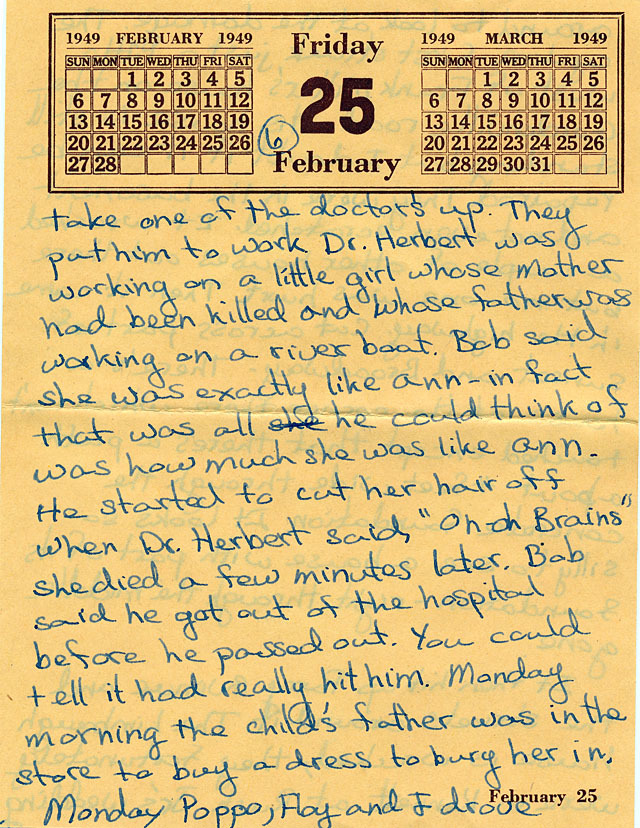 1949 FEBRUARY 1949
SUN MON TUE WED THU FRI SAT
1 2 3 4 5
6 7 8 9 10 11 12
13 14 15 16 17 18 19
20 21 22 23 24 25 26
27 28
Friday
25
6
February
1949 MARCH 1949
SUN MON TUE WED THU FRI SAT
1 2 3 4 5
6 7 8 9 10 11 12
13 14 15 16 17 18 19
20 21 22 23 24 25 26
27 28 29 30 31
take one of the doctor's up. They
put him to work Dr. Herbert was
working on a little girl whose mother
had been killed and whose father was
working on a river boat. Bob said
she was exactly like ann - in fact
that was all she he could think of
was how much she was like ann.
He started to cut her hair off
when Dr. Herbert said, "Oh-oh Brains"
she died a few minutes later. Bob
said he got out of the hospital
before he passed out. You could
tell it had really hit him. Monday
morning the child's father was in the
store to buy a dress to bury her in.
February 25
Monday Poppo, Floy and I drove